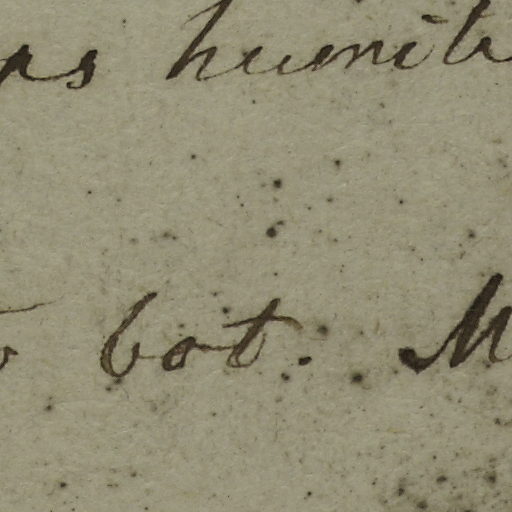 as humil
bot. M